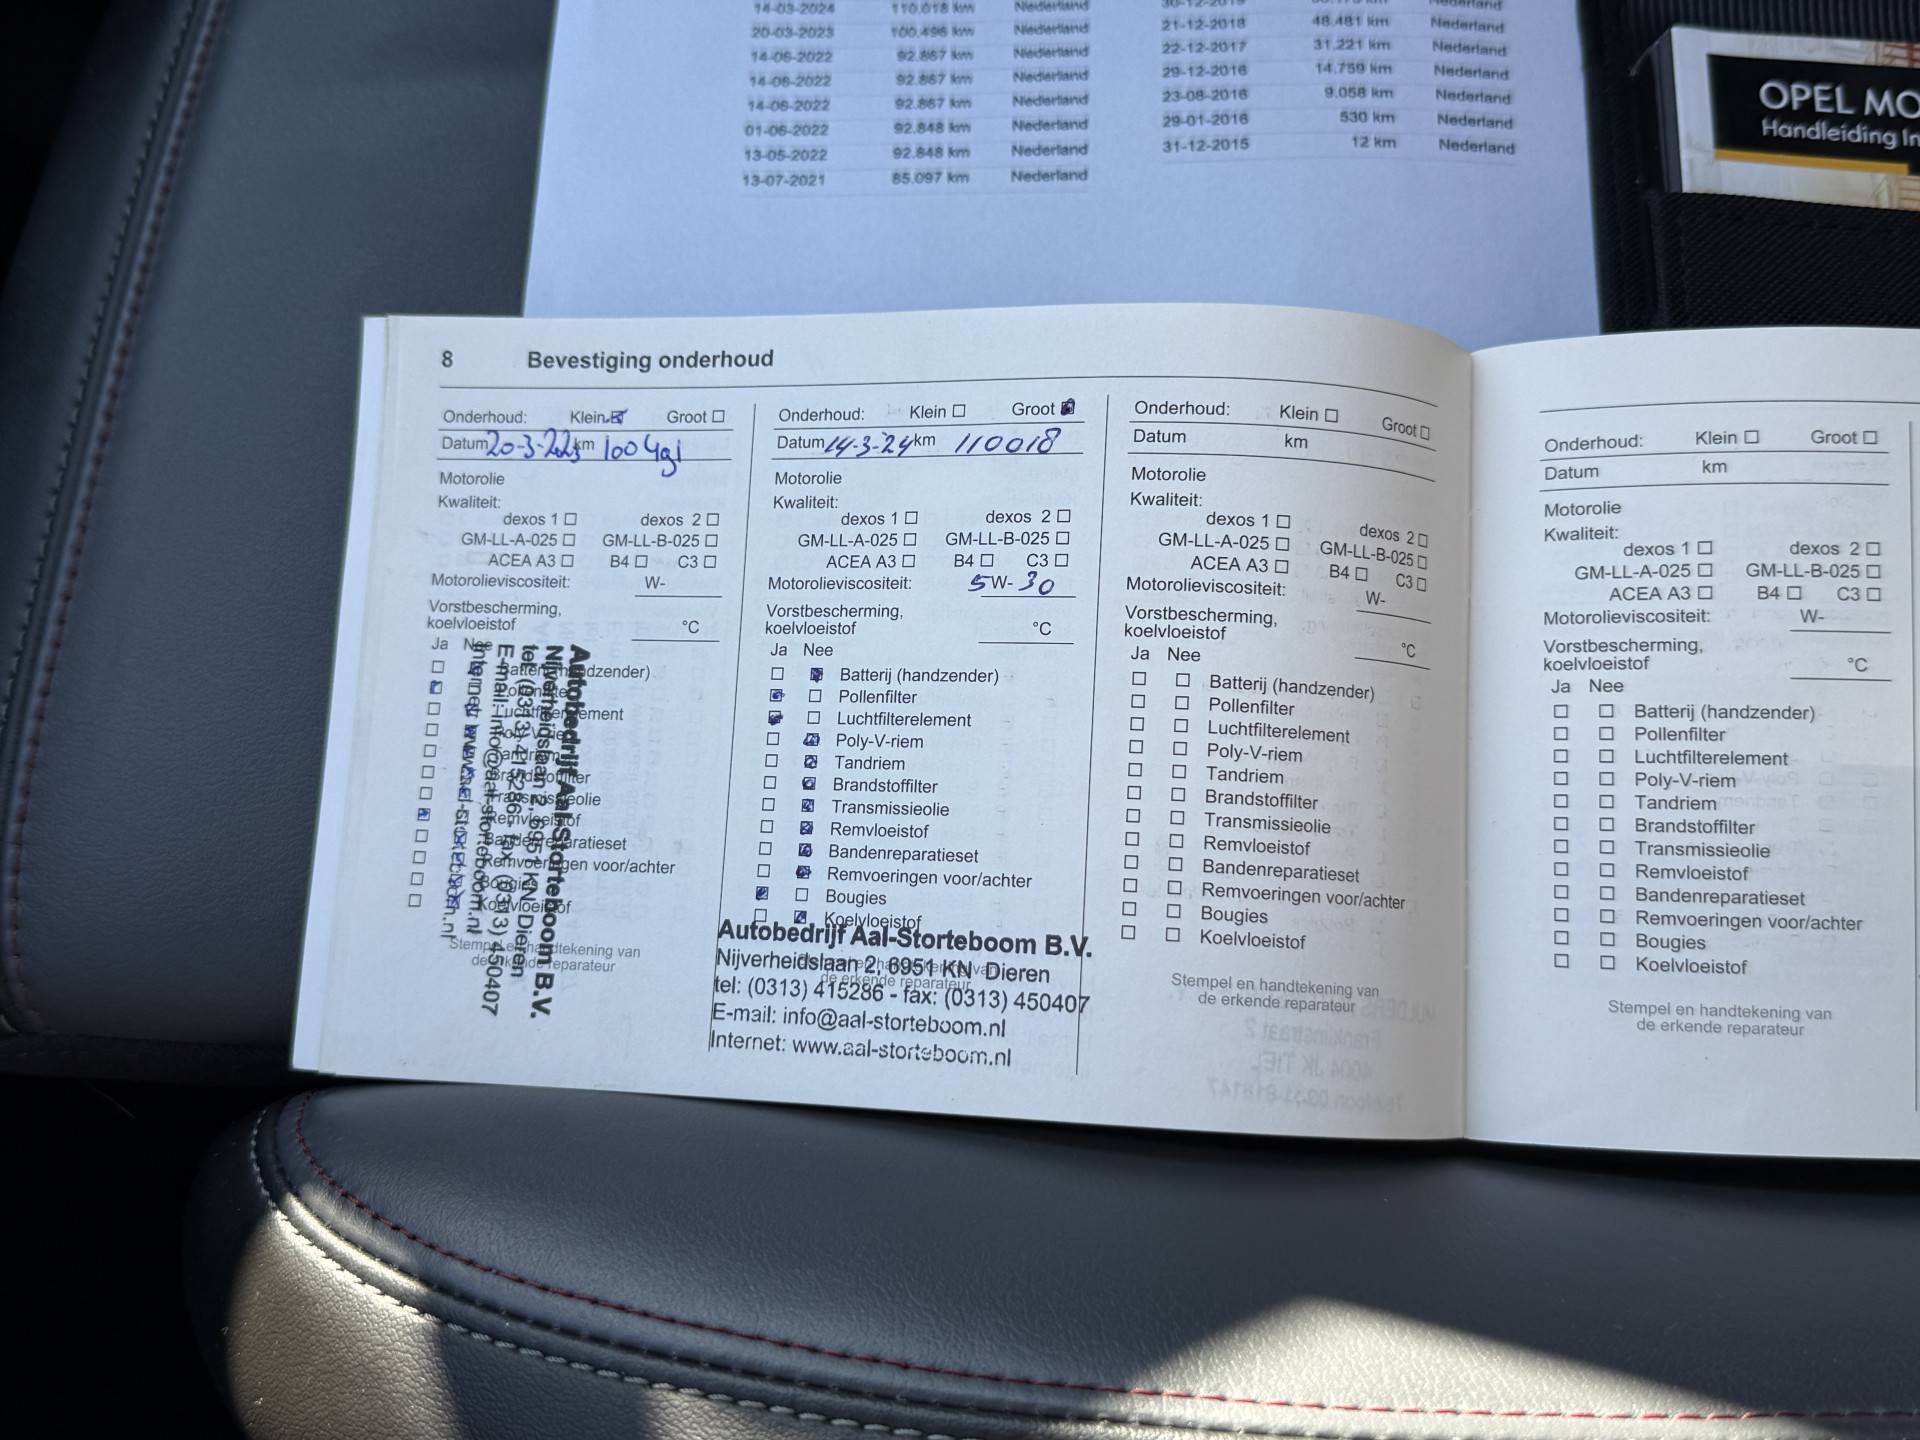 14-03-2024 110.018 km Nederland
20-03-2023 100.496 km Nederland
14-06-2022 92.867 km Nederland
14-06-2022 92.867 km Nederland
14-06-2022 92.867 km Nederland
01-06-2022 92.848 km Nederland
13-05-2022 92.848 km Nederland
13-07-2021 85.097 km Nederland
30-12-2019 km Nederland
21-12-2018 48.481 km Nederland
22-12-2017 31.221 km Nederland
29-12-2016 14.759 km Nederland
23-08-2016 9.058 km Nederland
29-01-2016 530 km Nederland
31-12-2015 12 km Nederland
OPEL MO
Handleiding In
8 Bevestiging onderhoud
Onderhoud: Klein Groot
Datum 20-3- km
Motorolie
Kwaliteit:
dexos 1 dexos 2
GM-LL-A-025 GM-LL-B-025
ACEA A3 B4 C3
Motorolieviscositeit: W-
Vorstbescherming,
koelvloeistof °C
Ja Nee
Batterij (handzender)
Pollenfilter
Luchtfilterelement
Poly-V-riem
Tandriem
Brandstoffilter
Transmissieolie
Remvloeistof
Bandenreparatieset
Remvoeringen voor/achter
Bougies
Koelvloeistof
Stempel en handtekening van
de erkende reparateur
Autobedrijf Aal-Storteboom B.V.
Nijverheidslaan 2, 6951 KN Dieren
tel: (0313) 415286 - fax: (0313) 450407
E-mail: info@aal-storteboom.nl
Internet: www.aal-storteboom.nl
Onderhoud: Klein Groot
Datum 14-3-24 km 110018
Motorolie
Kwaliteit:
dexos 1 dexos 2
GM-LL-A-025 GM-LL-B-025
ACEA A3 B4 C3
Motorolieviscositeit: 5W-30
Vorstbescherming,
koelvloeistof °C
Ja Nee
Batterij (handzender)
Pollenfilter
Luchtfilterelement
Poly-V-riem
Tandriem
Brandstoffilter
Transmissieolie
Remvloeistof
Bandenreparatieset
Remvoeringen voor/achter
Bougies
Koelvloeistof
Stempel en handtekening van
de erkende reparateur
Autobedrijf Aal-Storteboom B.V.
Nijverheidslaan 2, 6951 KN Dieren
tel: (0313) 415286 - fax: (0313) 450407
E-mail: info@aal-storteboom.nl
Internet: www.aal-storteboom.nl
Onderhoud: Klein Groot
Datum km
Motorolie
Kwaliteit:
dexos 1 dexos 2
GM-LL-A-025 GM-LL-B-025
ACEA A3 B4 C3
Motorolieviscositeit: W-
Vorstbescherming,
koelvloeistof °C
Ja Nee
Batterij (handzender)
Pollenfilter
Luchtfilterelement
Poly-V-riem
Tandriem
Brandstoffilter
Transmissieolie
Remvloeistof
Bandenreparatieset
Remvoeringen voor/achter
Bougies
Koelvloeistof
Stempel en handtekening van
de erkende reparateur
Onderhoud: Klein Groot
Datum km
Motorolie
Kwaliteit:
dexos 1 dexos 2
GM-LL-A-025 GM-LL-B-025
ACEA A3 B4 C3
Motorolieviscositeit: W-
Vorstbescherming,
koelvloeistof °C
Ja Nee
Batterij (handzender)
Pollenfilter
Luchtfilterelement
Poly-V-riem
Tandriem
Brandstoffilter
Transmissieolie
Remvloeistof
Bandenreparatieset
Remvoeringen voor/achter
Bougies
Koelvloeistof
Stempel en handtekening van
de erkende reparateur